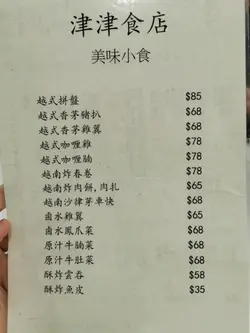 津津食店
美味小食
越式拼盤 $85
越式香茅豬扒 $68
越式香茅雞翼 $68
越式咖喱雞 $78
越式咖喱腩 $78
越南炸春卷 $78
越南炸肉餅,肉扎 $65
越南沙律芽車快 $68
鹵水雞翼 $65
鹵水鳳爪菜 $68
原汁牛腩菜 $68
原汁牛肚菜 $68
酥炸雲吞 $58
酥炸魚皮 $35